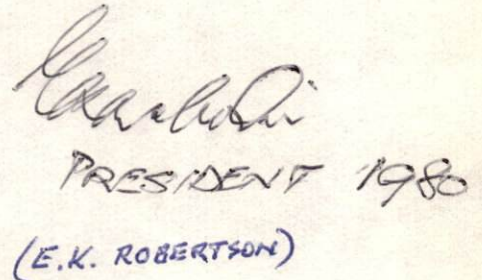 PRESIDENT 1980
(E.K. ROBERTSON)